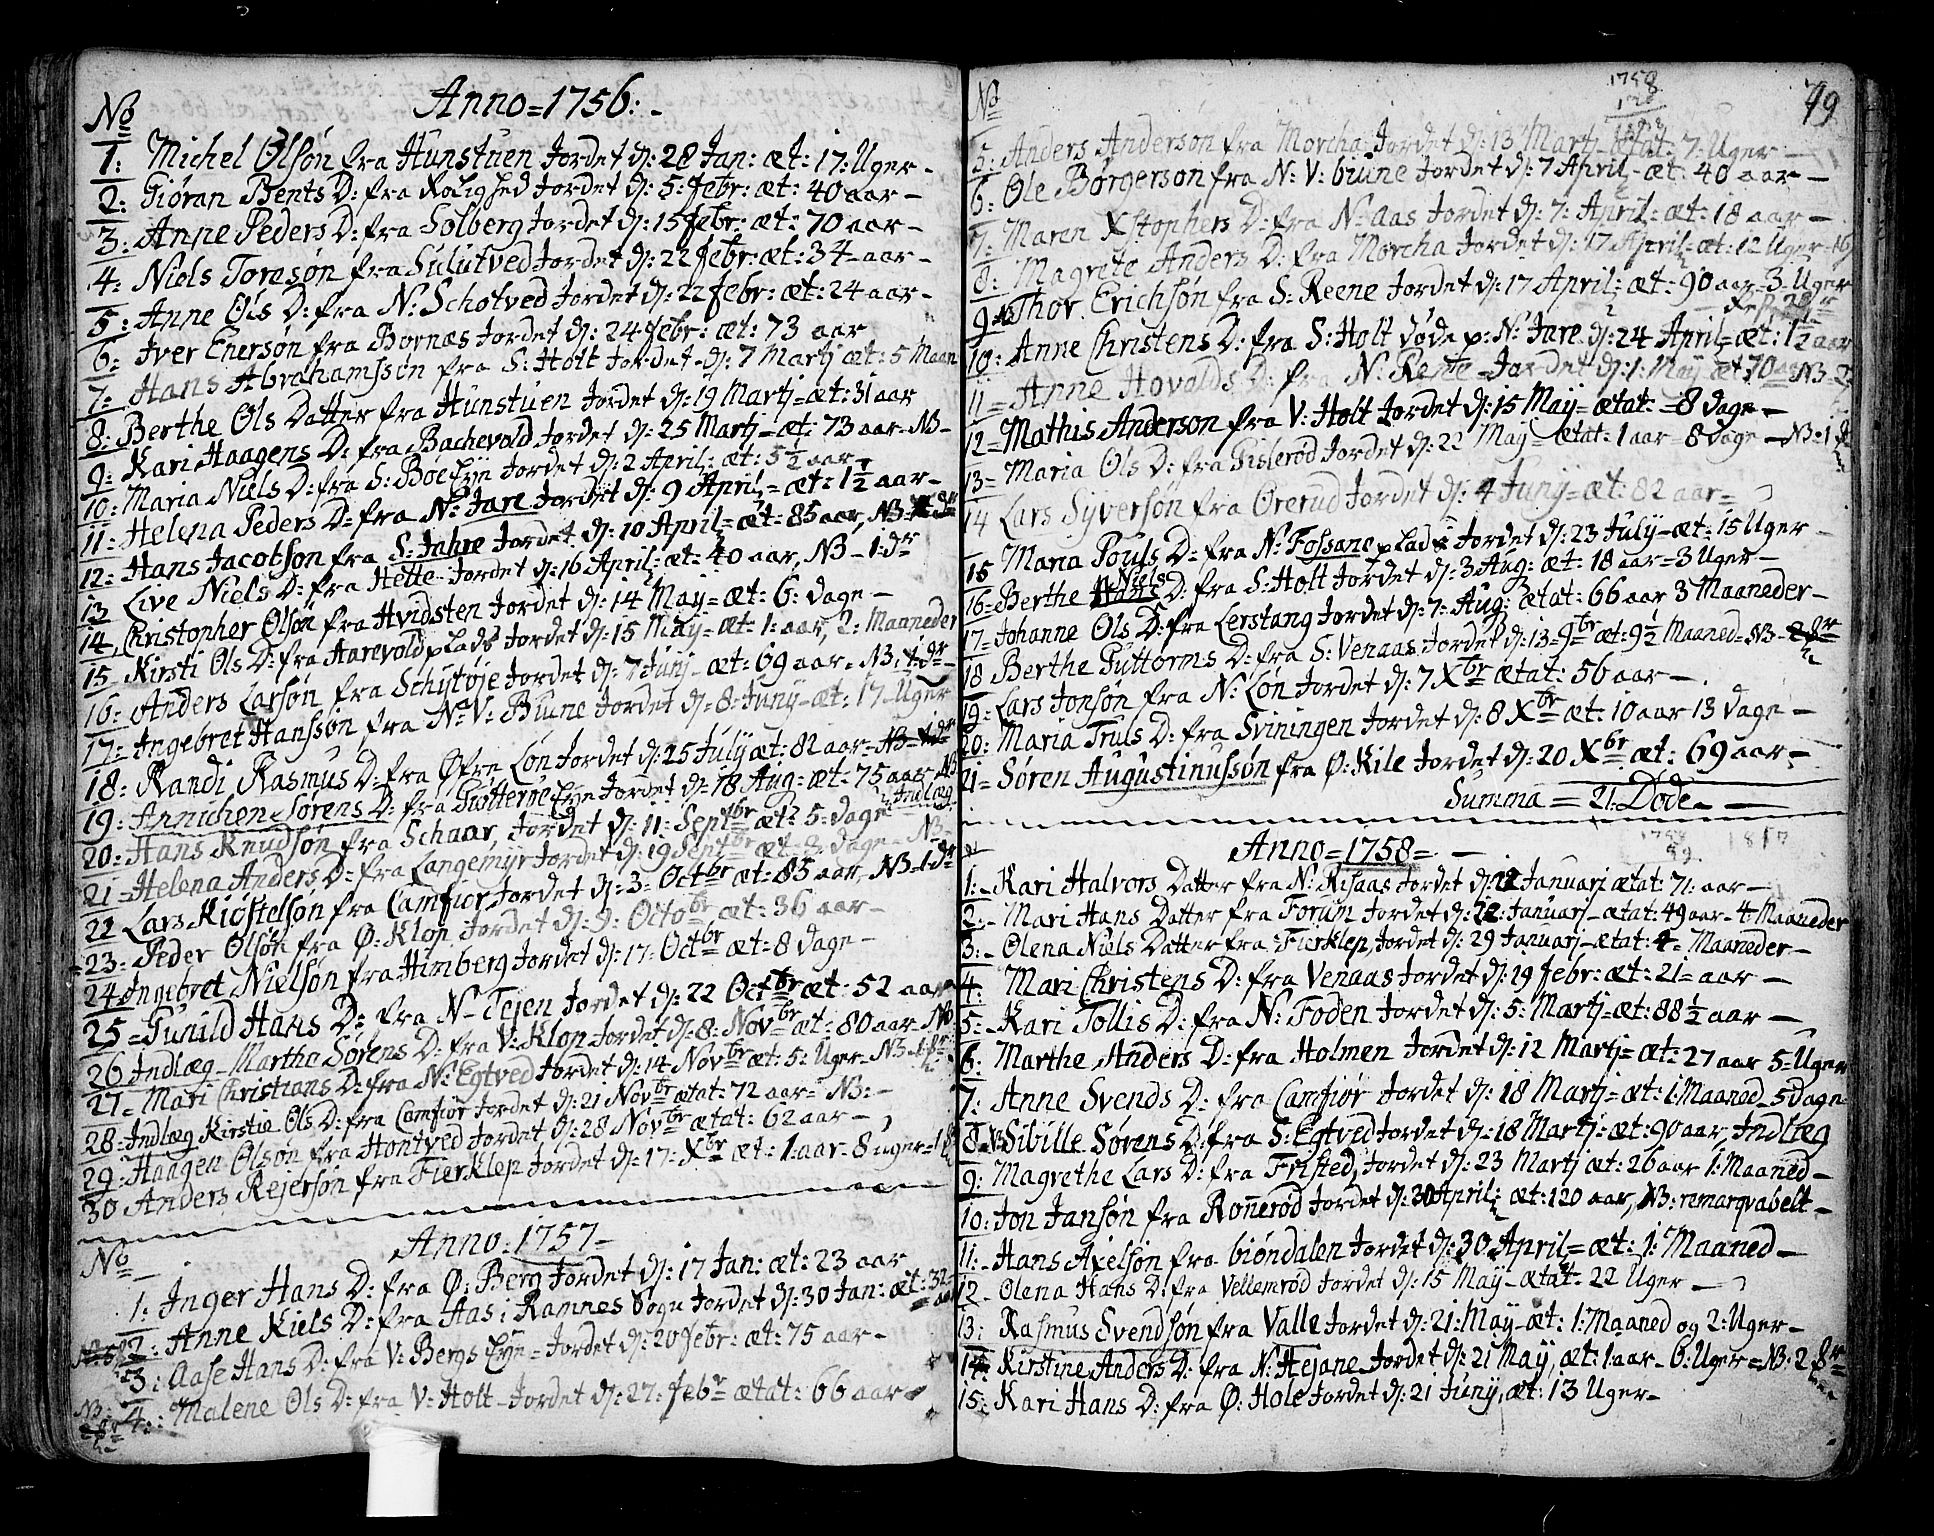 Anno=1756:-
No
1: Michel Olsøn fra Hunstuen Jordet d: 28 Jan: æt: 17: Uger-
2: Giøran Bents D: fra Rolighed Jordet d: 5: febr: æt: 40 aar-
3: Anne Peders D: fra Solberg Jordet d: 15 febr: æt: 70 aar-
4: Niels Toresøn fra Sulutved Jordet d: 22 febr: æt: 34 aar-
5: Anne Ols D: fra N: Schotved Jordet d: 22 febr: æt: 24 aar-
6: Iver Enersøn fra Bornæs Jordet d: 24 febr: æt: 73 aar
7: Hans Abrahamssøn fra S: Holt Jordet d: 7 Martj æt: 5 Maan
8: Berthe Ols Datter fra Hunstuen Jordet d: 19 Martj=æt: 31 aar
9: Kari Haagens D: fra Bachevold Jordet d: 25 Martj-æt: 73 aar-NB-
10: Maria Niels D: fra S: Boe Eye Jordet d: 2 April: æt: 5½ aar-
11: Helena Peders D: fra N: Jare Jordet d: 9 April=æt: 1½ aar-
12: Hans Jacobsøn fra S: Jahre Jordet d: 10 April=æt: 85 aar, NB=
13 Live Niels D: fra Hette Jordet d: 16 April: æt: 40 aar, NB-1: dr
14 Christopher Olsøn fra Hvidsten Jordet d: 14 May=æt: 6: dage-
15 Kirsti Ols D: fra Aarevold plads Jordet d: 15 May=æt: 1: aar, 2: Maaneder
16: Anders Larsøn fra Schytøje Jordet d: 7 Juny-æt: 69 aar-NB:
17: Ingebret Hanssøn fra N: V: Biune Jordet d: 8: Juny-æt: 17 Uger
18: Randi Rasmus D: fra Øfre Løn Jordet d: 25 July æt: 82 aar-
19: Annichen Sørens D: fra Gutterne Eye Jordet d: 18 Aug: æt: 75 aar NB
20: Hans Knudsøn fra Schaar, Jordet d: 11: Septbr æt: 5: dage Indlæg
21=Helena Anders D: fra Langemyr Jordet d: 19 Septbr æt: 3 dage-NB-
22 Lars Kiøstelsøn fra Camfiør Jordet d: 3: Octbr æt: 85 aar-NB-1 dr
23: Peder Olsøn fra Ø: Klop Jordet d: 9: Octobr æt: 36 aar-
24 Ingebret Nielsøn fra Himberg Jordet d: 17: Octbr æt: 8 dage-
25=Gunild Hans D: fra N-Tejen Jordet d: 22 Octbr æt: 52 aar
26 Indlæg-Martha Sørens D: fra V: Klop Jordet d: 8: Novbr æt: 80 aar-NB
27=Mari Christians D: fra N: Egtved Jordet d: 14 Novbr æt: 5: Uger-NB-
28=Indlæg Kirstie Ols D: fra Camfiør Jordet d: 21 Novbr ætat: 72 aar=NB:-
29: Haagen Olsøn fra Hontved Jordet d: 28 Novbr ætat: 62 aar-
30 Anders Rejersøn fra Fierklep Jordet d: 17: Xbr æt: 1: aar-8 uger
Anno: 1757-
No
1: Inger Hans D: fra Ø: Berg Jordet d: 17 Jan: æt: 23 aar
2: Anne Kiels D: fra Aas i Ramnes Sogn Jordet d: 30 Jan: æt: 32 aar
3: Aase Hans D: fra V: Bergs Eye=Jordet d: 20 febr: æt: 75 aar-
NB: 4: Malene Ols D: fra V: Holt-Jordet d: 27: febr ætat: 66 aar
1758
79
No
5: Anders Andersøn fra Morcha Jordet d: 13 Martj-ætat: 7: Uger-
6: Ole Børgersøn fra N: V: biune Jordet d: 7 April-æt: 40 aar-
7: Maren Xstophers D: fra N: Aas Jordet d: 7: April: æt: 18 aar-
8: Magrete Anders D: fra Morcha Jordet d: 17 April=æt: 12 Uger
9: Thor Erichsøn fra S: Reene Jordet d: 17 April: æt: 90 aar-3: Uger
10: Anne Christens D: fra S: Holt døde p: N: Jare d: 24 April=æt: 1½ aar
11=Anne Hovalds D: fra N: Rente-Jordet d: 1: May æt 70 aar NB
12=Mathis Andersøn fra V: Holt Jordet d: 15 May=ætat:=8 dage-
13=Maria Ols D: fra Gislerød Jordet d: 22 May=ætat: 1 aar=8 dage-NB=1
14 Lars Syversøn fra Ørerud Jordet d: 4 Juny=æt: 82 aar=
15 Maria Pouls D: fra N: Fossane plads Jordet d: 23 July-æt: 15 Uger-
16=Berthe Niels D: fra S: Holt Jordet d: 3 Aug: æt: 18 aar=3 Uger-
17=Johanne Ols D: fra Lerstang Jordet d: 7: Aug: ætat: 66 aar 3 Maaneder-
18 Berthe Guttorms D: fra S: Venaas Jordet d: 13=9br æt: 9½ Maaned=NB-
19=Lars Jonsøn fra N: Løn Jordet d: 7 Xbr ætat: 56 aar-
20: Maria Truls D: fra Sviningen Jordet d: 8 Xbr æt: 10 aar 13 dage-
21=Søren Augustinussøn fra Ø: Kile Jordet d: 20 Xbr æt: 69 aar-
Summa=21: Døde-
Anno=1758=-
1:-Kari Halvors Datter fra N: Risaas Jordet d: 12 Januari ætat: 71: aar-
2:-Mari Hans Datter fra Forum Jordet d: 12: Januarj-ætat: 49 aar-4: Maaneder
3:-Olena Niels Datter fra Fierklep, Jordet d: 29 Januarj-ætat: 4=Maaneder-
4: Mari Christens D: fra Venaas Jordet d: 19 febr: æt: 21=aar-
5:-Kari Tollis D: fra N: Foden Jordet d: 5: Martj=æt: 88½ aar-
6: Marthe Anders D: fra Holmen Jordet d: 12 Martj=æt: 27 aar 5=Uger
7: Anne Svends D: fra Camfiør Jordet d: 18 Martj=æt: 1: Maaned-5 dage-
8: Sibille Sørens D: fra S: Egtved Jordet d: 18 Martj=æt: 90 aar, Indlæg
9: Magrethe Lars D: fra Fristed, Jordet d: 23 Martj æt: 26 aar 1: Maaned-
10: Jon Jansøn fra Ronerød Jordet d: 30 April: æt: 120 aar, NB: remarqvabelt-
11:-Hans Axelsøn fra biøndalen Jordet d: 30 April=æt: 1: Maaned-
12-Olena Hans D: fra Vellemrød Jordet d: 15 May-ætat=22 Uger-
13: Rasmus Svendsøn fra Valle Jordet d: 21: May-æt: 1: Maaned og 2: Uger-
14: Kirstine Anders D: fra N: Hejane-Jordet d: 21 May, æt: 1: aar-6: Uger=NB: 2
15: Kari Hans D: fra Ø: Hole Jordet d: 21 Juny, æt: 13 Uger-